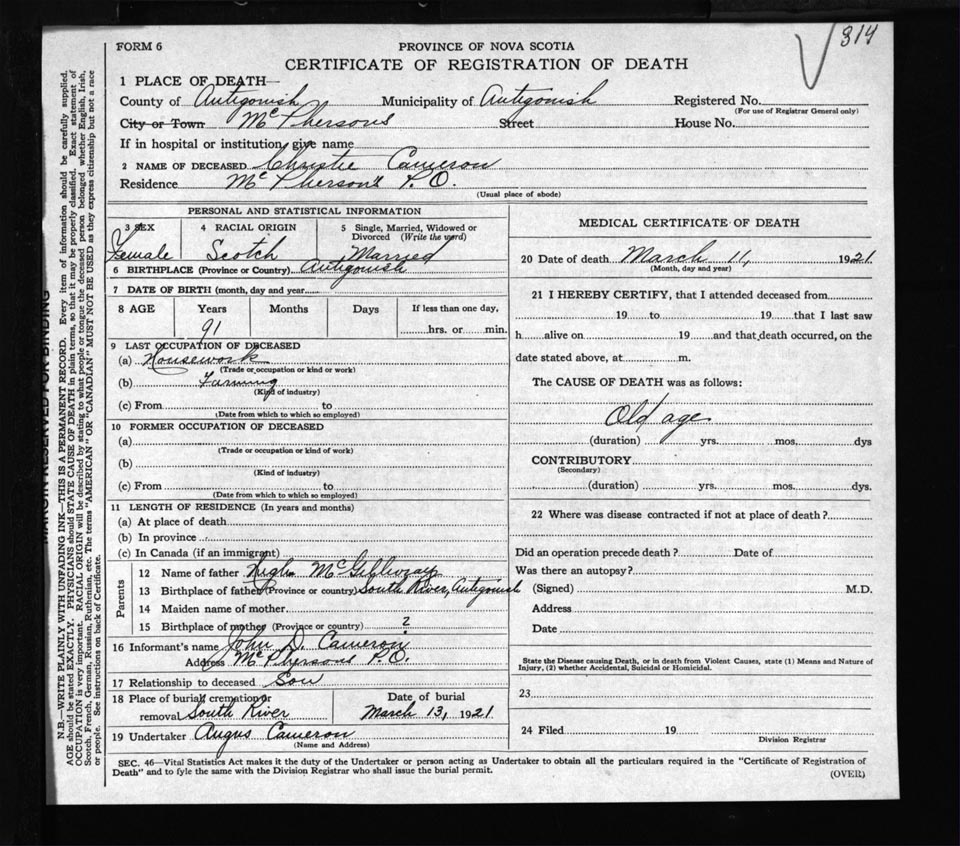 314
FORM 6
PROVINCE OF NOVA SCOTIA
CERTIFICATE OF REGISTRATION OF DEATH
1 PLACE OF DEATH—
County of Antigonish Municipality of Antigonish Registered No.
(For use of Registrar General only)
City or Town McPhersons Street House No.
If in hospital or institution, give name
2 NAME OF DECEASED Christie Cameron
Residence McPherson's P.O.
(Usual place of abode)
PERSONAL AND STATISTICAL INFORMATION
3 SEX 4 RACIAL ORIGIN 5 Single, Married, Widowed or Divorced (Write the word)
Female Scotch Married
6 BIRTHPLACE (Province or Country) Antigonish
7 DATE OF BIRTH (month, day and year)
8 AGE Years Months Days If less than one day,
91 hrs. or min.
9 LAST OCCUPATION OF DECEASED
(a) Housework
(Trade or occupation or kind or work)
(b) Farming
(Kind of industry)
(c) From to
(Date from which to which so employed)
10 FORMER OCCUPATION OF DECEASED
(a)
(Trade or occupation or kind of work)
(b)
(Kind of industry)
(c) From to
(Date from which to which so employed)
11 LENGTH OF RESIDENCE (In years and months)
(a) At place of death
(b) In province
(c) In Canada (if an immigrant)
Parents
12 Name of father McGillivray
13 Birthplace of father (Province or country) South River, Antigonish
14 Maiden name of mother
15 Birthplace of mother (Province or country) ?
16 Informant's name John D. Cameron
Address McPhersons P.O.
17 Relationship to deceased Son
18 Place of burial, cremation or Date of burial
removal South River March 13, 1921
19 Undertaker Angus Cameron
(Name and Address)
MEDICAL CERTIFICATE OF DEATH
20 Date of death March 11, 1921
(Month, day and year)
21 I HEREBY CERTIFY, that I attended deceased from
19 to 19 that I last saw
h alive on 19 and that death occurred, on the
date stated above, at m.
The CAUSE OF DEATH was as follows:
Old age
(duration) yrs. mos. dys
CONTRIBUTORY
(Secondary)
(duration) yrs. mos. dys.
22 Where was disease contracted if not at place of death?
Did an operation precede death? Date of
Was there an autopsy?
(Signed) M.D.
Address
Date
State the Disease causing Death, or in death from Violent Causes, state (1) Means and Nature of
Injury, (2) whether Accidental, Suicidal or Homicidal.
23
24 Filed 19
Division Registrar
SEC. 46—Vital Statistics Act makes it the duty of the Undertaker or person acting as Undertaker to obtain all the particulars required in the "Certificate of Registration of
Death" and to fyle the same with the Division Registrar who shall issue the burial permit.
(OVER)
MARGIN RESERVED FOR BINDING
N.B.—WRITE PLAINLY WITH UNFADING INK—THIS IS A PERMANENT RECORD. Every item of information should be carefully supplied.
AGE should be stated EXACTLY. PHYSICIANS should STATE CAUSE OF DEATH in plain terms, so that it may be properly classified. Exact statement of
OCCUPATION is very important. RACIAL ORIGIN will be described by stating to what people or tongue the deceased person belonged whether English, Irish,
Scotch, French, German, Russian, Ruthenian, etc. The terms "AMERICAN" OR "CANADIAN" MUST NOT BE USED as they express citizenship but not a race
or people. See instructions on back of Certificate.